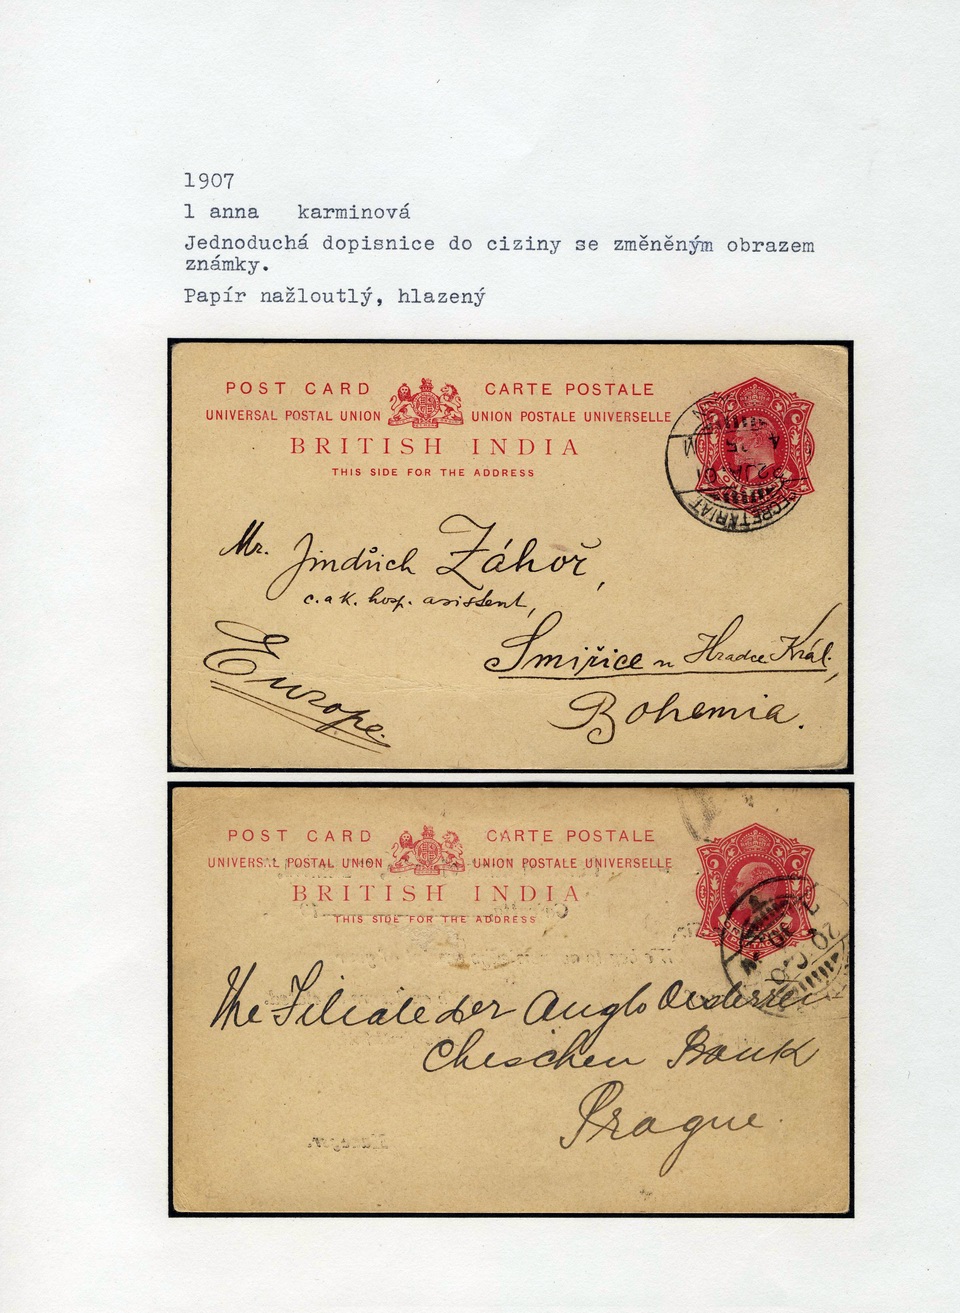 1907
1 anna karminová
Jednoduchá dopisnice do ciziny se změněným obrazem
známky.
Papír nažloutlý, hlazený
POST CARD CARTE POSTALE
UNIVERSAL POSTAL UNION UNION POSTALE UNIVERSELLE
BRITISH INDIA
THIS SIDE FOR THE ADDRESS
SECRETARIAT
Mr. Jindřich Záhoř,
c.a k. hosp. asistent,
Smiřice u Hradce Král.,
Europe.
Bohemia.
POST CARD CARTE POSTALE
UNIVERSAL POSTAL UNION UNION POSTALE UNIVERSELLE
BRITISH INDIA
THIS SIDE FOR THE ADDRESS
POSTAGE
The Filiale der Anglo Oesterrei
Cheschen Bank
Prague